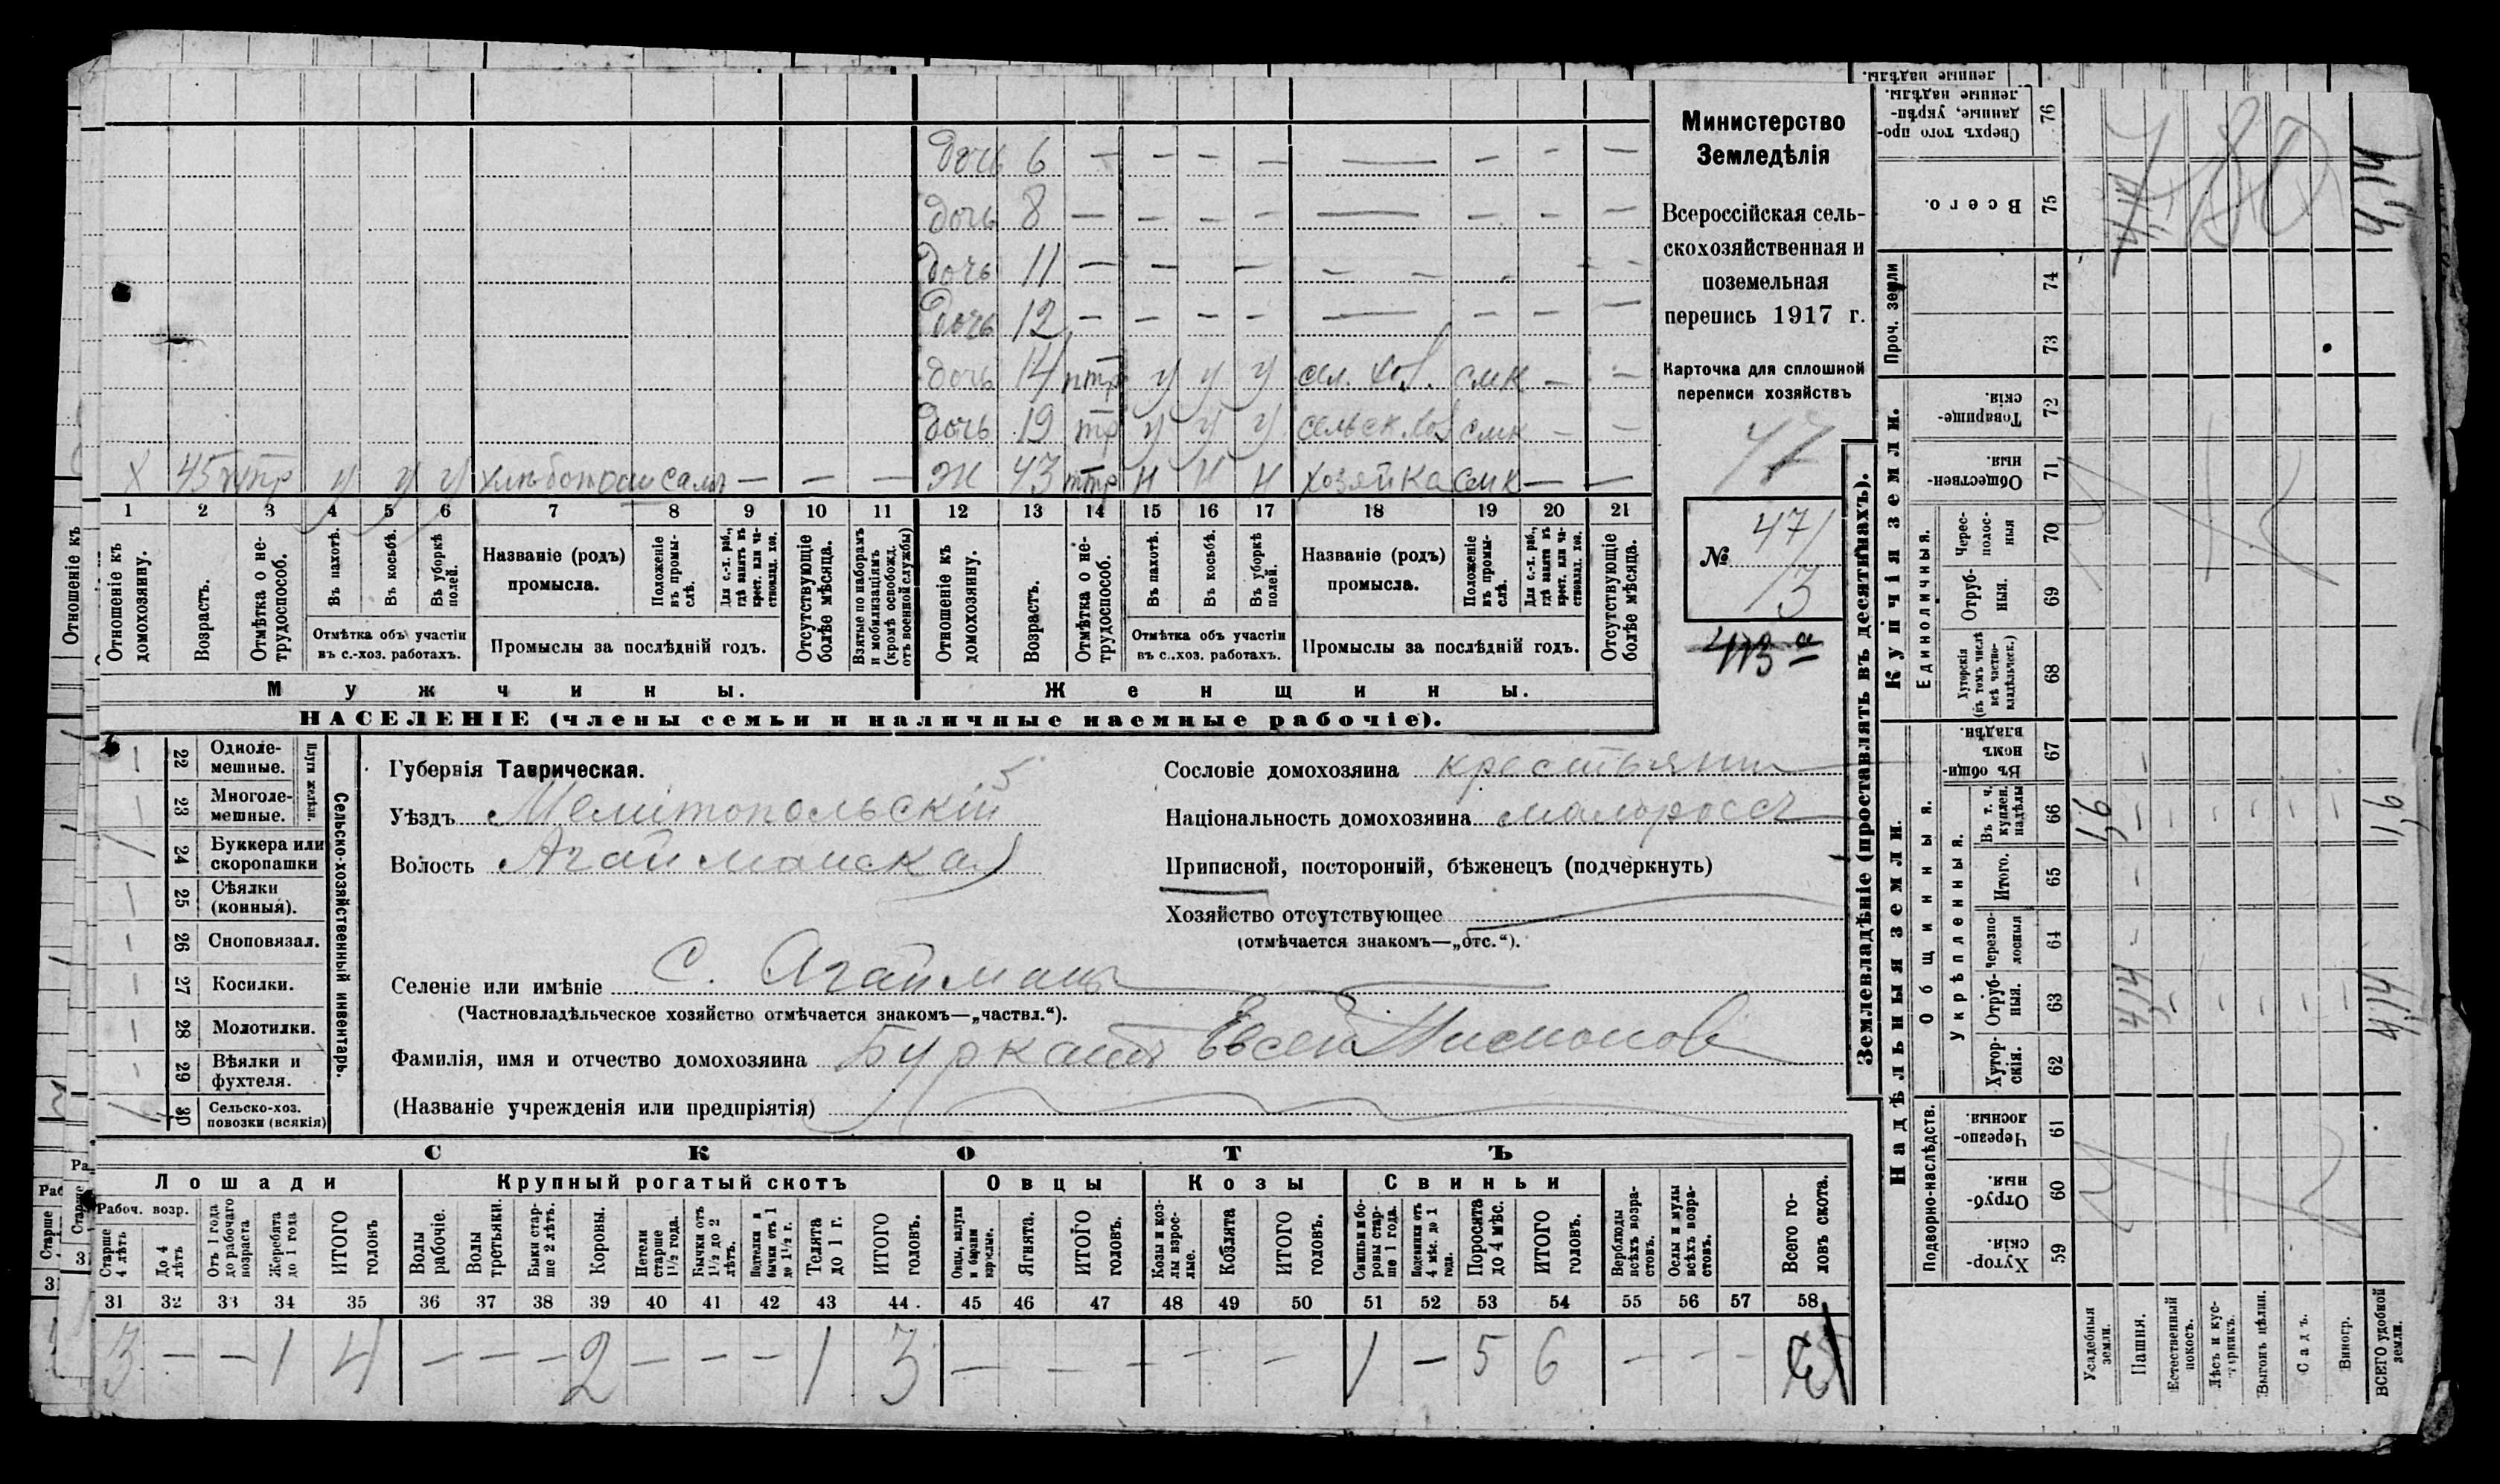 дочь 6 — — — — — — — —
дочь 8 — — — — — — — —
дочь 11 — — — — — — — —
дочь 12 — — — — — — — —
дочь 14 птр у у у сел. хоз. смк — —
дочь 19 тр у у у сельск. хоз смк — —
Х 45 у у у сам — — — Ж 43 Н Н Н хозяйка смк — —
1 2 3 4 5 6 7 8 9 10 11 12 13 14 15 16 17 18 19 20 21
Отношеніе къ домохозяину.
Возрастъ.
Отмѣтка о не-трудоспособ.
Въ пахотѣ.
Въ косьбѣ.
Въ уборкѣ полей.
Отмѣтка объ участіи
въ с.-хоз. работахъ.
Названіе (родъ)
промысла.
Положеніе въ промы-слѣ.
Для с.-х. раб., гдѣ занятъ въ крест. или ча-ствовлад. хоз.
Промыслы за послѣдній годъ.
Отсутствующіе болѣе мѣсяца.
Взятые по наборамъ и мобилизаціямъ (кромѣ освобожд. отъ военной службы)
Отношеніе къ домохозяину.
Возрастъ.
Отмѣтка о не-трудоспособ.
Въ пахотѣ.
Въ косьбѣ.
Въ уборкѣ полей.
Отмѣтка объ участіи
въ с..хоз. работахъ.
Названіе (родъ)
промысла.
Положеніе въ промы-слѣ.
Для с.-х. раб., гдѣ занята въ крест. или ча-ствовлад. хоз.
Промыслы за послѣдній годъ.
Отсутствующіе болѣе мѣсяца.
Мужчины. Женщины.
НАСЕЛЕНІЕ (члены семьи и наличные наемные рабочіе).
Министерство
Земледѣлія
Всероссійская сель-
скохозяйственная и
поземельная
перепись 1917 г.
Карточка для сплошной
переписи хозяйствъ
47
№ 47/
13
413 а
22 Одноле-мешные.
23 Многоле-мешные.
Плуги желѣзн.
24 Буккера или скоропашки
25 Сѣялки (конныя).
26 Сноповязал.
27 Косилки.
28 Молотилки.
29 Вѣялки и фухтеля.
30 Сельско-хоз. повозки (всякія)
Сельско-хозяйственный инвентарь.
Губернія Таврическая. 5
Уѣздъ Мелитопольскій
Волость Агайманская
Сословіе домохозяина крестьянин
Національность домохозяина малоросс
Приписной, посторонній, бѣженецъ (подчеркнуть)
Хозяйство отсутствующее
(отмѣчается знакомъ—„отс.“).
Селеніе или имѣніе С. Агайманы
(Частновладѣльческое хозяйство отмѣчается знакомъ—„частвл.“).
Фамилія, имя и отчество домохозяина Евсей
(Названіе учрежденія или предпріятія)
СКОТЪ
Лошади Крупный рогатый скотъ Овцы Козы Свиньи
Рабоч. возр.
Старше 4 лѣтъ
До 4 лѣтъ
Отъ 1 года до рабочаго возраста
Жеребята до 1 года
ИТОГО головъ
Волы рабочіе.
Волы третьяки.
Быки стар-ше 2 лѣтъ.
Коровы.
Нетели старше 1½ года.
Бычки отъ 1½ до 2 лѣтъ.
Подтелки и бычки отъ 1 до 1½ г.
Телята до 1 г.
ИТОГО головъ.
Овцы, валухи и бараны взрослые.
Ягнята.
ИТОГО головъ.
Козы и коз-лы взрос-лые.
Козлята
ИТОГО головъ.
Свиньи и бо-ровы стар-ше 1 года.
Подсвинки отъ 4 мѣс. до 1 года.
Поросята до 4 мѣс.
ИТОГО головъ.
Верблюды всѣхъ возра-стовъ.
Ослы и мулы всѣхъ возра-стовъ.
Всего го-ловъ скота.
31 32 33 34 35 36 37 38 39 40 41 42 43 44 45 46 47 48 49 50 51 52 53 54 55 56 57 58
3 — — 1 4 — — — 2 — — — 1 3 — — — — — — 1 — 5 6 — — —
Землевладѣніе (проставлять въ десятинахъ).
Надѣльныя земли. Купчія земли. Проч. земли
Подворно-наслѣдств.
Общинныя.
Укрѣпленныя.
Единоличныя.
Хутор-скія. 59
Отруб-ныя. 60
Черезпо-лосныя 61
Хутор-скія. 62
Отруб-ныя. 63
Черезпо-лосныя 64
Итого. 65
Въ т. ч. куплен. надѣлы 66
Въ общин-номъ владѣн. 67
Хуторскія (въ томъ числѣ всѣ частно-владѣльческ.) 68
Отруб-ныя. 69
Черес-полос-ныя 70
Обществен-ныя. 71
Товарище-скія. 72
73
74
Всего. 75
Сверхъ того про-данные, укрѣп-ленные надѣлы. 76
Усадебныя земли.
Пашня.
Естественный покосъ.
Лѣсъ и кус-тарникъ.
Выгонъ цѣлин.
Садъ.
Виногр.
ВСЕГО удобной земли.